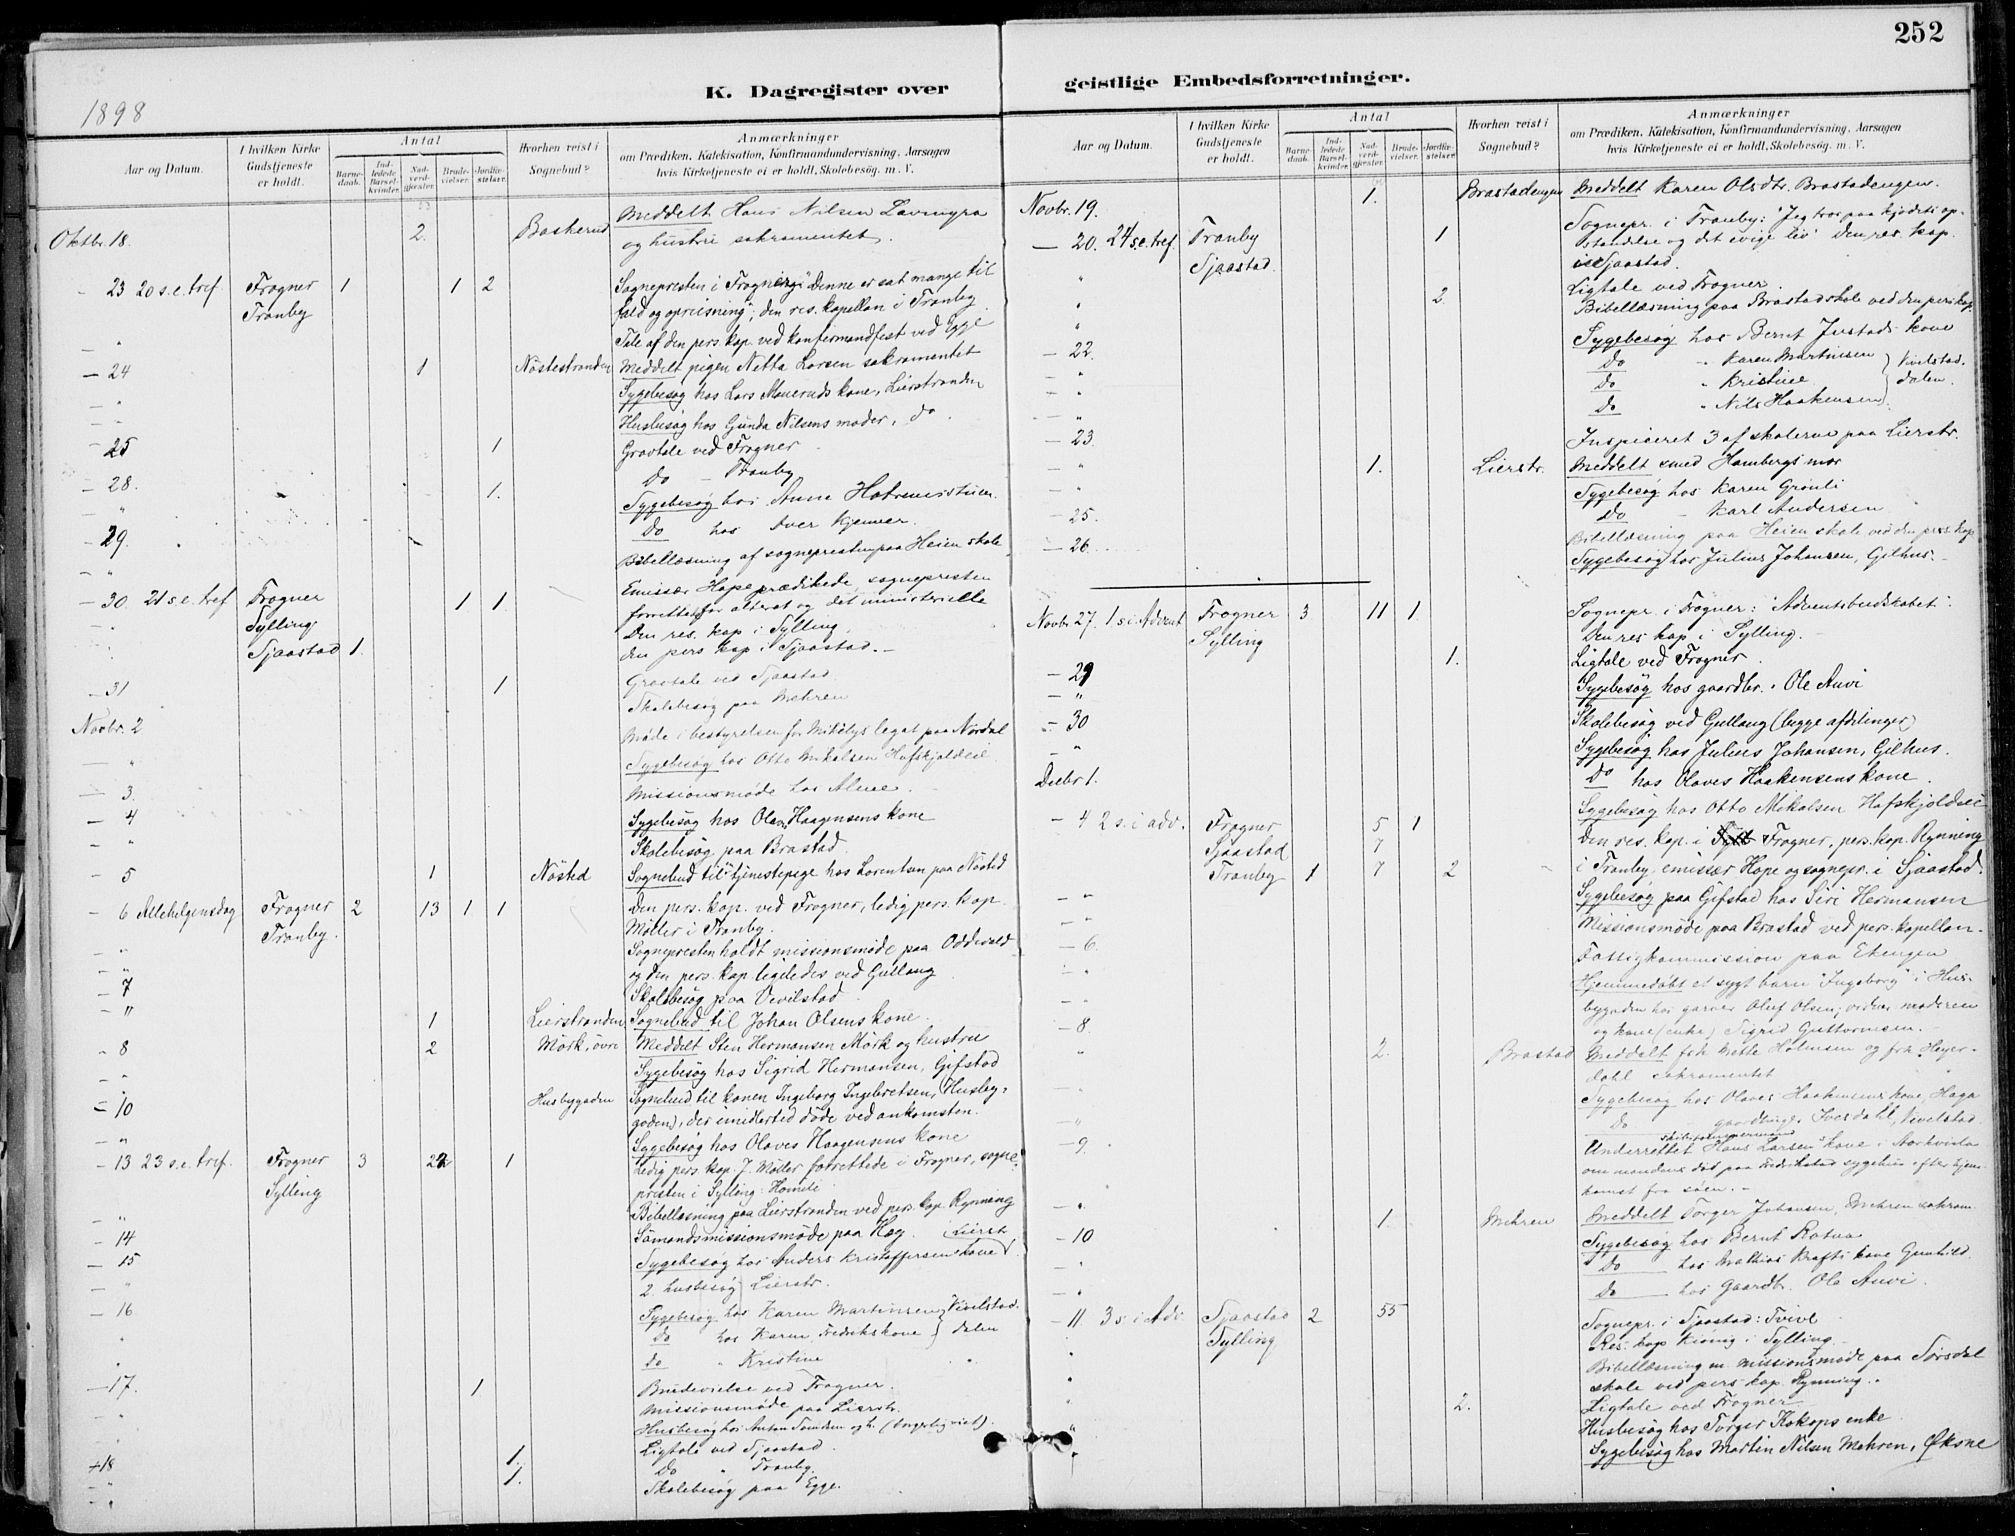 252
K. Dagregister over
geistlige Embedsforretninger.
1898
Aar og Datum.
I hvilken Kirke Gudstjeneste er holdt.
Antal
Barnedaab.
Indledede Barselkvinder.
Nadverdgjæster.
Brudevielser.
Jordfæstelser.
Hvorhen reist i Sognebud?
Anmærkninger
om Prædiken, Katekisation, Konfirmandundervisning, Aarsagen
hvis Kirketjeneste ei er holdt, Skolebesøg, m. V.
Oktbr. 18. 2. Baskerud Meddelt Hans Nilsen Lavingra
og hustru sakramentet.
- 23 20 s.e.tref Frogner 1 1 2 Sognepresten i Frogner: "Denne er sat mange til
Tranby fald og opreisning", den res. kapellan i Tranby
" Tale af den pers. kap. ved konfirmandfest ved Egge
- 24 1 Nøstestranden Meddelt pigen Netta Larsen sakramentet
- " Sygebesøg hos Lars Moeruds kone, Lierstranden
- " Husbesøg hos Gunda Nilsens moder, do.
- 25 1 Gravtale ved Frogner
- 28. 1. Do - Tranby
" Sygebesøg hos Anne
- 29. Do hos Iver Kjenner
- " Bibellæsning af sognepresten paa Heien skole
- 30. 21 s.e.tref Frogner 1 1. Emissær Hope prædikede, sognepresten
Sylling forrettet for alteret og det ministerielle
Den res. kap i Sylling
Sjaastad 1. den pers kap. i Sjaastad.
- 31 1 Gravtale ved Sjaastad
Skolebesøg paa Mehren
Novbr. 2 Møde i bestyrelsen for legat paa Nordal
- " Sygebesøg hos Otto Mikalsen Hafskjoldeie
- 3. Missionsmøde hos
- 4 Sygebesøg hos Olavs Haagensens kone
- " Skolebesøg paa Brastad.
- 5 1 Nøsted Sognebud til tjenestepige hos Lorentsen paa Nøsted
- 6 Allehelgensdag Frogner 2 13 1 1 Den pers. kap. ved Frogner, ledig pers. kap.
Tranby. Møller i Tranby.
- " Sognepresten holdt missionsmøde paa Oddevold
- " og den pers. kap. ligeledes ved Gullaug
- 7 Skolebesøg paa Vivelstad
- " 1 Lierstranden Sognebud til Johan Olsens kone.
- 8 2 Mørk, øvre Meddelt Sten Hermansen Mørk og hustru
- " Sygebesøg hos Sigrid Hermansen, Gifstad
- 10 Husbygaden Sognebud til konen Ingeborg Ingebretsen, Husby-
gaden, der imidlertid døde ved ankomsten.
- " Sygebesøg hos Olaves Haagensens kone
- 13 23 s.e.tref. Frogner 3 22 1 Ledig pers. kap. J. Møller forrettede i Frogner, sogne-
Sylling presten i Sylling: Homili
- " Bibellæsning paa Lierstranden ved pers. kap. Rynning
- 14 Sømandsmissionsmøde paa Høg. (Lierst.
- 15 Sygebesøg hos Anders Kristoffersens kone
- " 2 husbesøg Lierstr.
- 16 Sygebesøg hos Karen Martinsen Vivelstad-
" Do hos Karen Fredrikskone dalen
" do " Kristine
- 17. 1 Brudevielse ved Frogner.
" Missionsmøde paa Lierstr.
" Husbesøg hos Anton (borgerlig viet).
" 1. Ligtale ved Sjaastad.
- 18 1. Do " Tranby.
- " Skolebesøg paa Egge.
Aar og Datum.
I hvilken Kirke Gudstjeneste er holdt.
Antal
Barnedaab.
Indledede Barselkvinder.
Nadverdgjæster.
Brudevielser.
Jordfæstelser.
Hvorhen reist i Sognebud?
Anmærkninger
om Prædiken, Katekisation, Konfirmandundervisning, Aarsagen
hvis Kirketjeneste ei er holdt, Skolebesøg, m. V.
Novbr. 19. 1. Brastadengen Meddelt Karen Olsdtr. Brastadengen.
- 20. 24 s.e.tref Tranby 1 Sognepr. i Tranby: "Jeg tror paa kjødets op-
Sjaastad. standelse og det evige liv" Den res. kap.
i Sjaastad.
" 2. Ligtale ved Frogner.
" Bibellæsning paa Brastad skole ved den pers kap.
" Sygebesøg hos Bernt Justads kone
- 22. Do " Karen Martinsen Vivelstad-
- " Do " Kristine dalen.
- " Do " Nils Haakensen
- 23 Inspiceret 3 af skolerne paa Lierstr.
- " 1. Lierstr. Meddelt smed Hambergs mor
- " Sygebesøg hos Karen Grønli
- 25. Do - Karl Andersen
- 26. Bibellæsning paa Heien skole ved den pers. kap
Sygebesøg hos Julius Johansen, Gilhus.
Novbr 27. 1 s. i Advent Frogner 3 11 1 Sognepr. i Frogner: "Adventsbudskabet".
Sylling Den res kap. i Sylling.
1. Ligtale ved Frogner.
- 29 Sygebesøg hos gaardbr. Ole Auvi
- " Skolebesøg ved Gullaug (begge afdelinger)
- 30 Sygebesøg hos Julius Johansen, Gilhus.
- " Do hos Olaves Haakensens kone.
Decbr 1. Sygebesøg hos Otto Mikalsen Hafskjoldeie
- 4 2 s. i adv. Frogner 5 1 Den res. kap. i Frogner, pers. kap. Rynning
Sjaastad 7
Tranby 1 7 2 i Tranby, emissær Hope og sognepr. i Sjaastad.
- " Sygebesøg paa Gifstad hos Siri Hermansen
- " Missionsmøde paa Brastad ved pers. kapellan.
- 6. Fattigkommission paa Etengen
- " Hjemmedøbt et sygt barn "Ingeborg" i Hus-
bygaden hos garver Oluf Olsen; vidner moderen
og kone (enke) Sigrid Guttormsen.
- 8.
" 2. Brastad Meddelt frk Mette Holmsen og frk Heyer-
dahl sakramentet
" Sygebesøg hos Olaves Haakensens kone, Haga
" Do gaardbruger Iversdahl, Vivelstad
- 9. Underrettet Hans Larsens kone i Storkvinla
om mandens død paa Fredrikstad sygehus efter hjem-
komst fra søen.
- " 1. Mehren Meddelt Torger Johansen, Mehren sakram.
- 10 Sygebesøg hos Bernt
" Do hos Mathias Krafts kone Gunhild.
" Do hos Gaardbr. Ole Auvi.
- 11. 3 s. i Adv. Sjaastad 2 55 Sognepr. i Sjaastad: Tvivl
Sylling Res. kap Kiønig i Sylling
" Bibellæsning m. missionsmøde paa Sørsdal
skole ved pers kap. Rynning.
" 2. Ligtale ved Frogner
" Husbesøg hos Torger Kokops enke
" Sygebesøg hos Martin Nilsen Mehren, Øksne